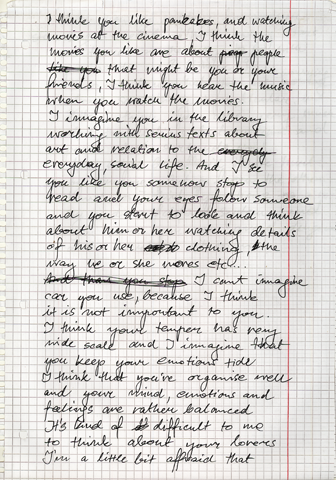 I think you like pankakes, and watching
movis at the cinema, I think the
movies you like are about people
that might be you or your
friends, I think you hear the music
when you watch the movies.
I immagine you in the library
working with serius texts about
art and relation to the
everyday, social life. And I see
you like you somehow stop to
read and your eyes follow someone
and you start to look and think
about him or her watching details
of his or her clothing, the
way he or she moves etc...
And than you stop I can't immagine
car you use, because I think
it is not important to you.
I think your temper has very
wide scale and I imagine that
you keep your emotions
I think that you're organise well
and your mind, emotions and
feelings are rather balanced
It's kind of difficult to me
to think about your lovers
I'm a little bit affraid that